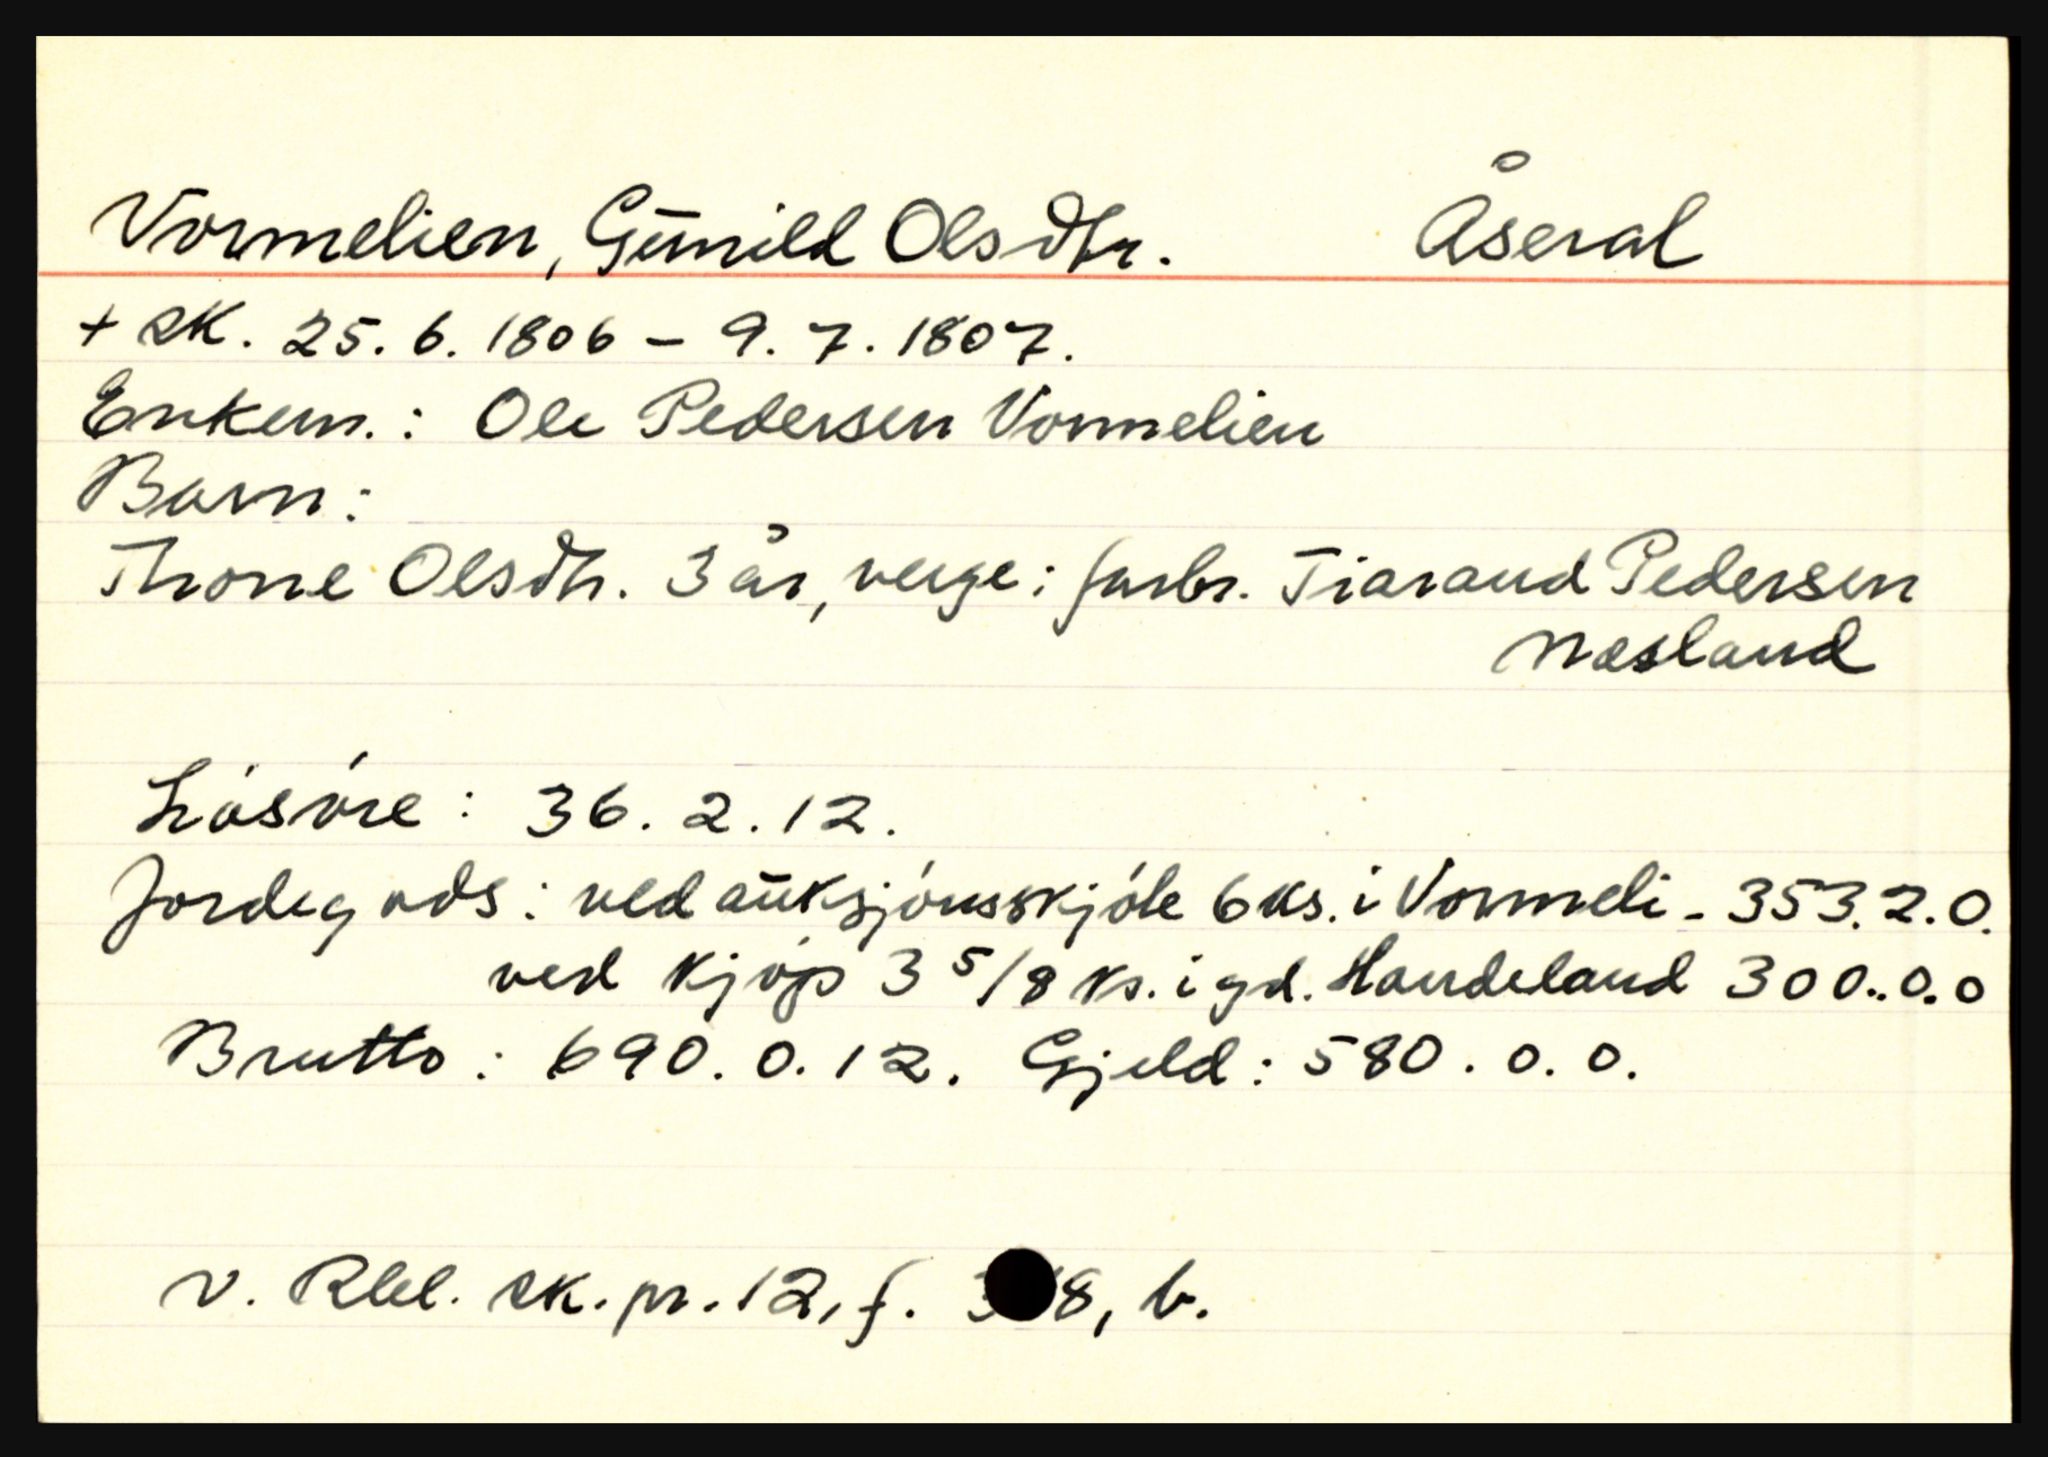 Vormelien, Gunild Olsdtr. Åseral
+ sk. 25.6.1806 - 9.7.1807.
Enkem.: Ole Pedersen Vormelien
Barn:
Throne Olsdtr. 3 år, verge: farbr. Tiarand Pedersen
Næsland
Løsøre: 36.2.12.
Jordegods: ved auksjónsskjóte 6 ks. i Vormeli - 353.2.0.
ved kjøp 3 5/8 ks. i gd. Handeland 300..0.0
Brutto: 690.0.12. Gjeld: 580.0.0.
v. Rbl. sk. pr. 12, f. 8, b.